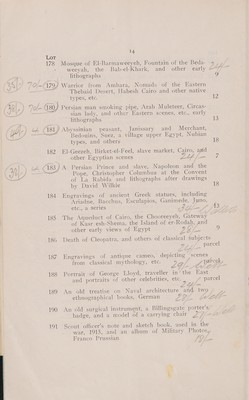 14
Lot
178 Mosque of El-Barnawereyah, Fountain of the Beda-
wereyah, the Bab-el-Khark, and other early
lithographs 9
179 Warrior from Amhara, Nomads of the Eastern
Thebaid Desert, Hubesh Cairo and other native
types, etc. 12
180 Persian man smoking pipe, Arab Muleteer, Circas-
sian lady, and other Eastern scenes, etc., early
lithographs 13
181 Abyssinian peasant, Janissary and Merchant,
Bedouins, Suez, a village upper Egypt, Nubian
types, and others 18
182 El-Gezeeh, Birket-el-Feel, slave market, Cairo, and
other Egyptian scenes 7
183 A Persian Prince and slave, Napoleon and the
Pope, Christopher Columbus at the Convent
of La Rabida and lithographs after drawings
by David Wilkie 18
184 Engravings of ancient Greek statues, including
Ariadne, Bacchus, Esculapius, Ganimede, Juno,
etc., a series
185 The Aqueduct of Cairo, the Citadel
of Kasr esh-Shema, the Island of er-Rodah, and
other early views of Egypt 9
186 Death of Cleopatra, and others of classical subjects
parcel
187 Engravings of antique cameos, depicting scenes
from classical mythology, etc. parcel
188 Portrait of George Lloyd, traveller in the East
and portraits of other celebrities, etc. parcel
189 An old treatise on Naval architecture and two
ethnographical books, German
190 An old surgical instrument, a Billingsgate porter's
badge, and a model of a carrying chair
191 Scout officer's note and sketch book, used in the
war, 1915, and an album of Military Photos,
Franco Prussian